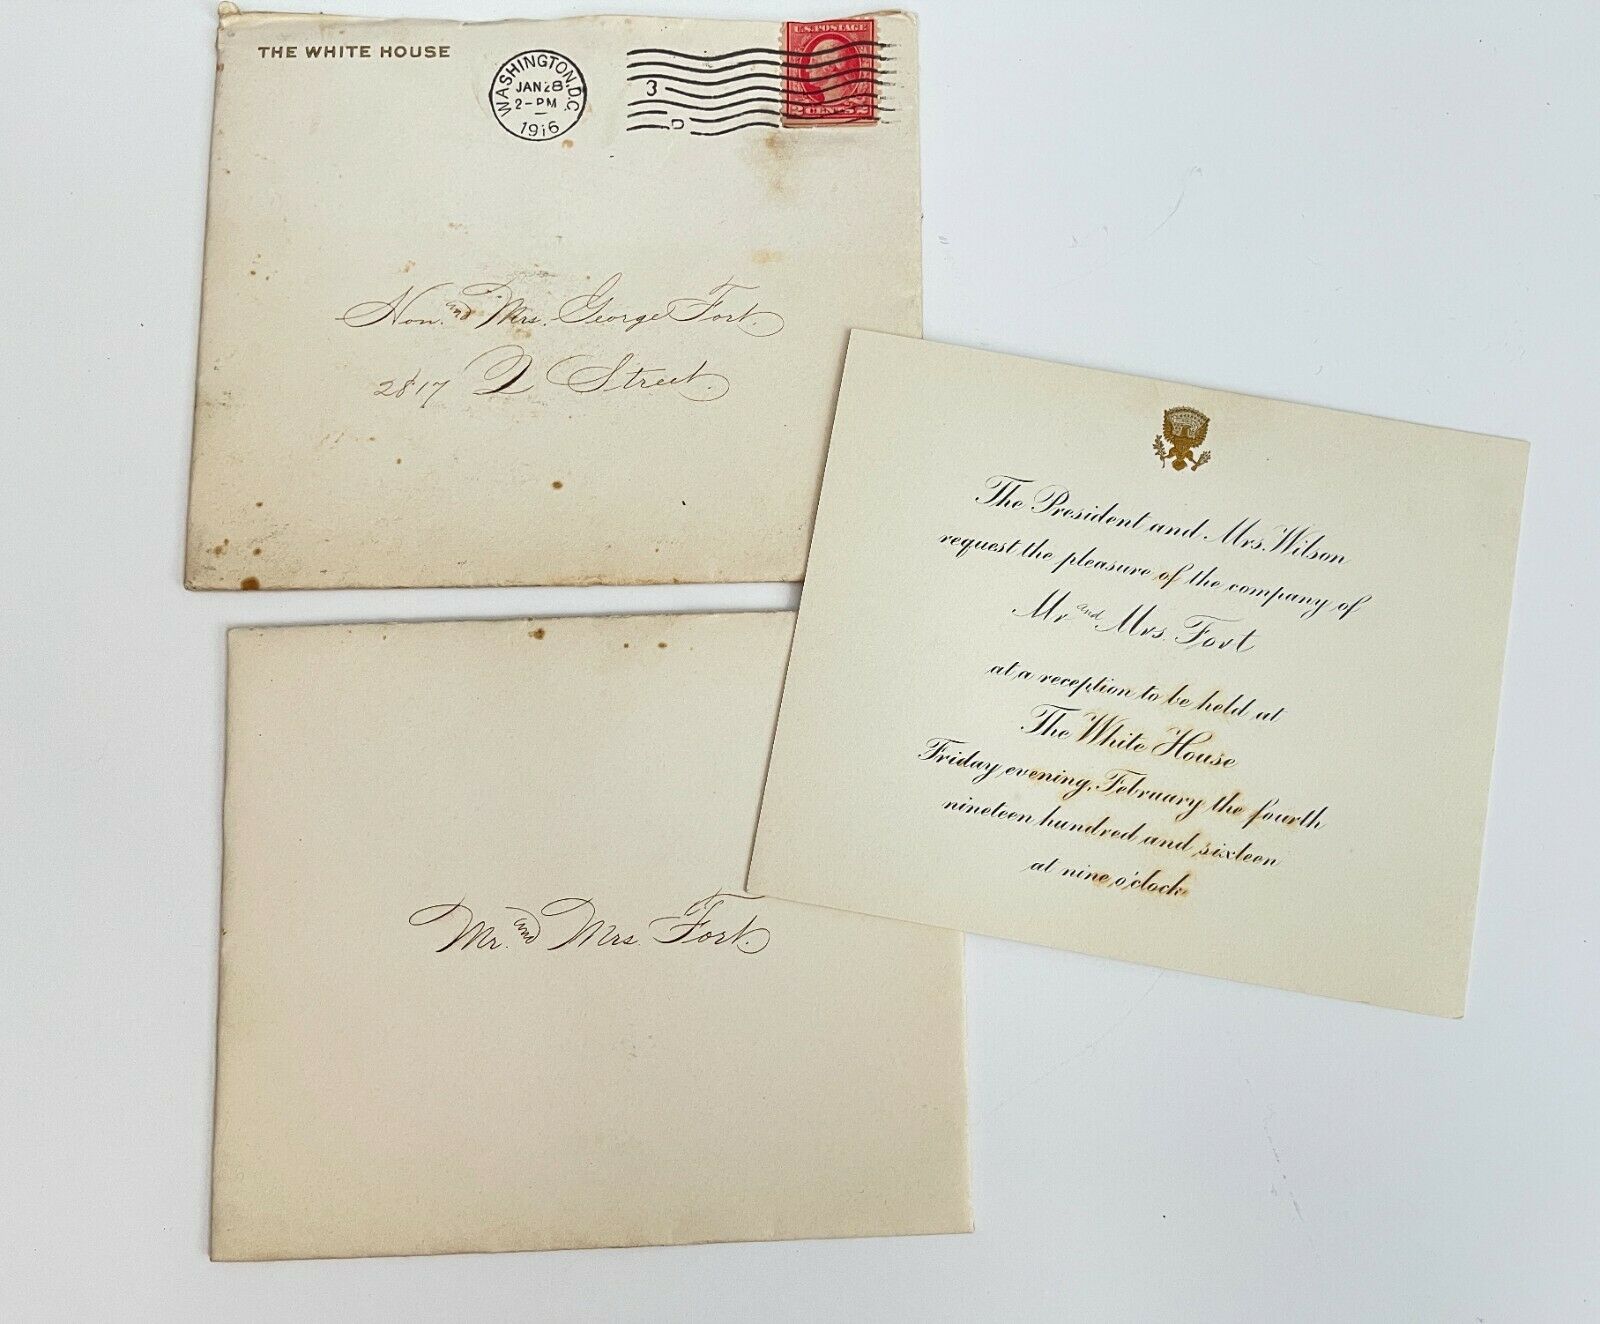 THE WHITE HOUSE
WASHINGTON, D.C.
JAN 28
2-PM
1916
3
D
U.S. POSTAGE
2 CENTS 2
Hon. and Mrs. George Fort.
2817 Q Street.
The President and Mrs. Wilson
request the pleasure of the company of
Mr and Mrs. Fort
at a reception to be held at
The White House
Friday evening, February the fourth
nineteen hundred and sixteen
at nine o'clock
Mr. and Mrs. Fort.